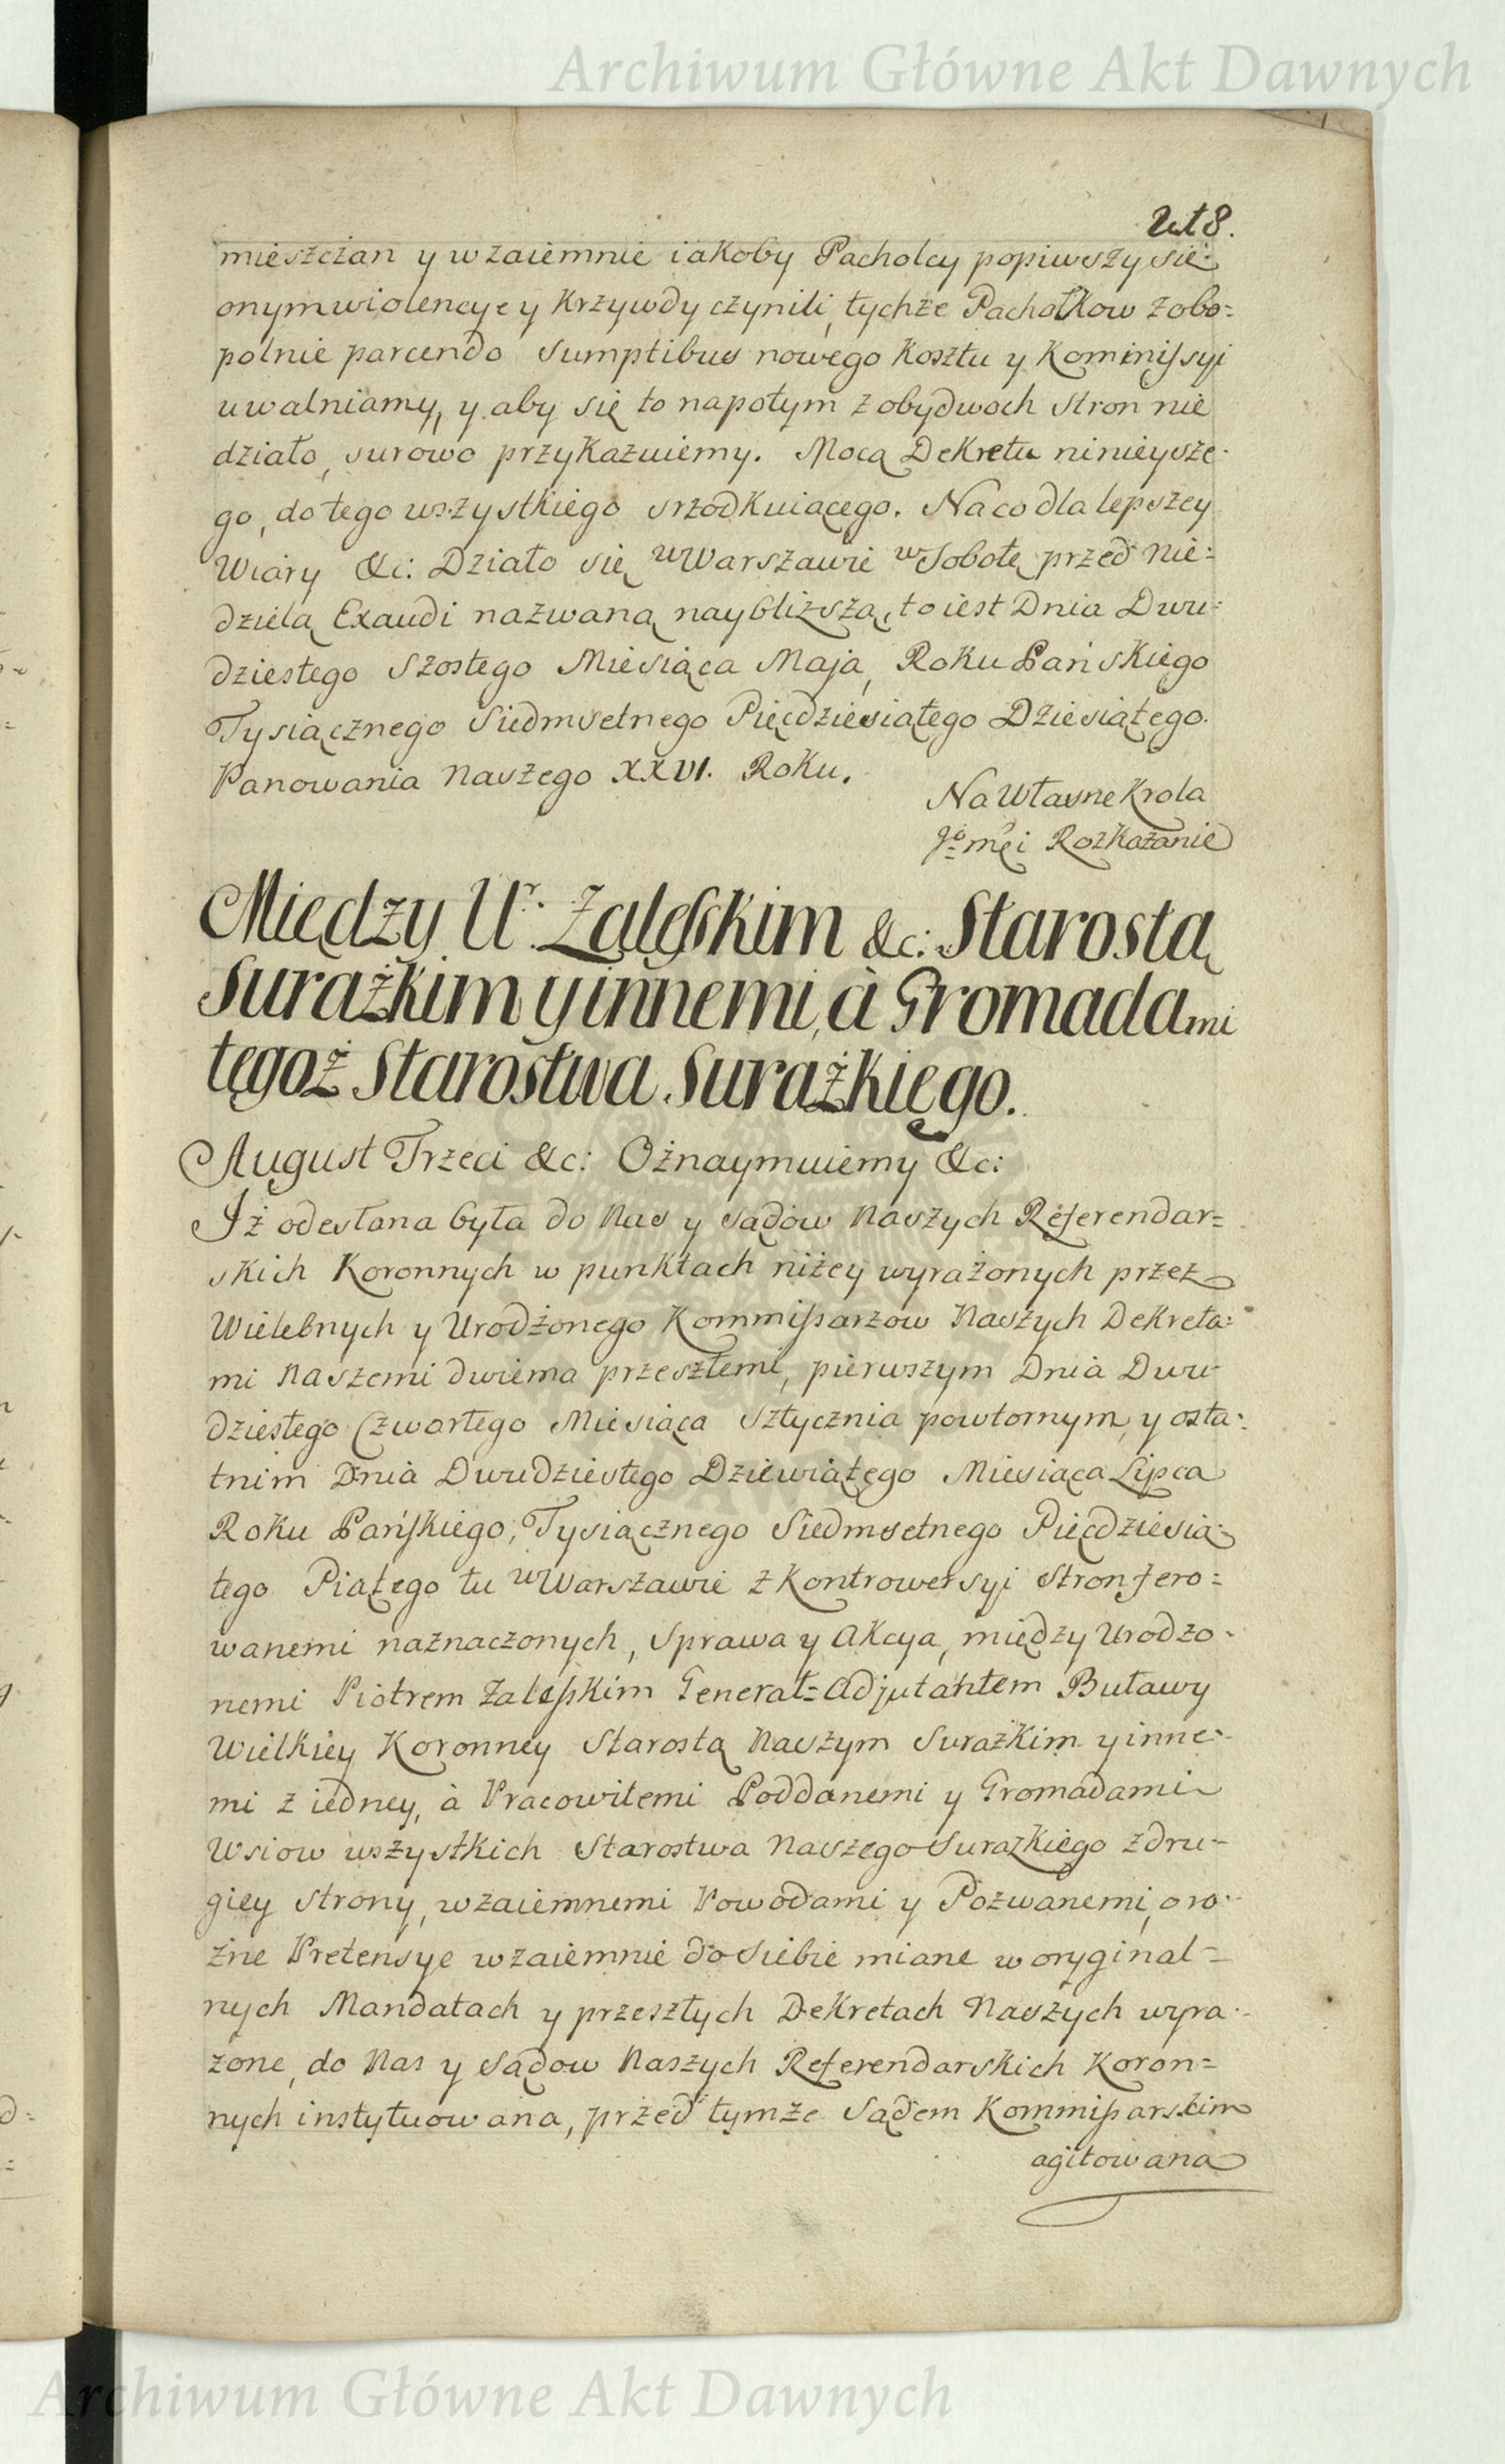 Archiwum Główne Akt Dawnych
218.
mieszczan y wzaiemnie iakoby Pacholcy popiwszy się
onym wiolencye y Krzywdy czynili, tychże Pachołkow zobo=
polnie parcendo sumptibus nowego Kosztu y Kommissyi
uwalniamy, y aby się to napotym z obydwoch stron nie
działo, surowo przykazuiemy. Mocą Dekretu ninieysze-
go, do tego wszystkiego srzodkuiącego. Na co dla lepszey
Wiary &c: Działo się w Warszawie w Sobotę przed Nie=
dzielą Exaudi nazwaną naybliższą, to iest Dnia Dwu=
dziestego Szostego Miesiąca Maja, Roku Pańskiego
Tysiącznego Siedmsetnego Pięćdziesiątego Dziesiątego.
Panowania Naszego XXVI. Roku.
Na Własne Krola
Jo mći Rozkazanie
Między Ur. Zaleskim &c: Starostą
Surażkim y innemi, à Gromadami
tegoż Starostwa Surażkiego.
August Trzeci &c: Oznaymuiemy &c:
Iż odesłana była do Nas y sądow Naszych Referendar=
skich Koronnych w punktach niżey wyrażonych przez
Wielebnych y Urodzonego Kommissarzow Naszych Dekreta=
mi Naszemi dwiema przeszłemi, pierwszym Dnia Dwu-
dziestego Czwartego Miesiąca Sztycznia powtornym, y osta=
tnim Dnia Dwudziestego Dziewiątego Miesiąca Lipca
Roku Pańskiego, Tysiącznego Siedmsetnego Pięćdziesią-
tego Piątego tu w Warszawie z Kontrowersyi Stron fero=
wanemi naznaczonych, Sprawa y Akcya, między Urodzo-
nemi Piotrem Zaleskim Generał=Adjutantem Buławy
Wielkiey Koronney Starostą Naszym Surażkim y inne-
mi z iedney, à Pracowitemi Poddanemi y Gromadami
Wsiow wszystkich Starostwa Naszego Surażkiego z dru-
giey strony, wzaiemnemi Powodami y Pozwanemi, o ro-
żne Pretensye wzaiemnie do siebie miane w oryginal=
nych Mandatach y przeszłych Dekretach Naszych wyra-
żone, do Nas y Sądow Naszych Referendarskich Koron=
nych instytuowana, przed tymże Sądem Kommissarskim
agitowana
Archiwum Główne Akt Dawnych